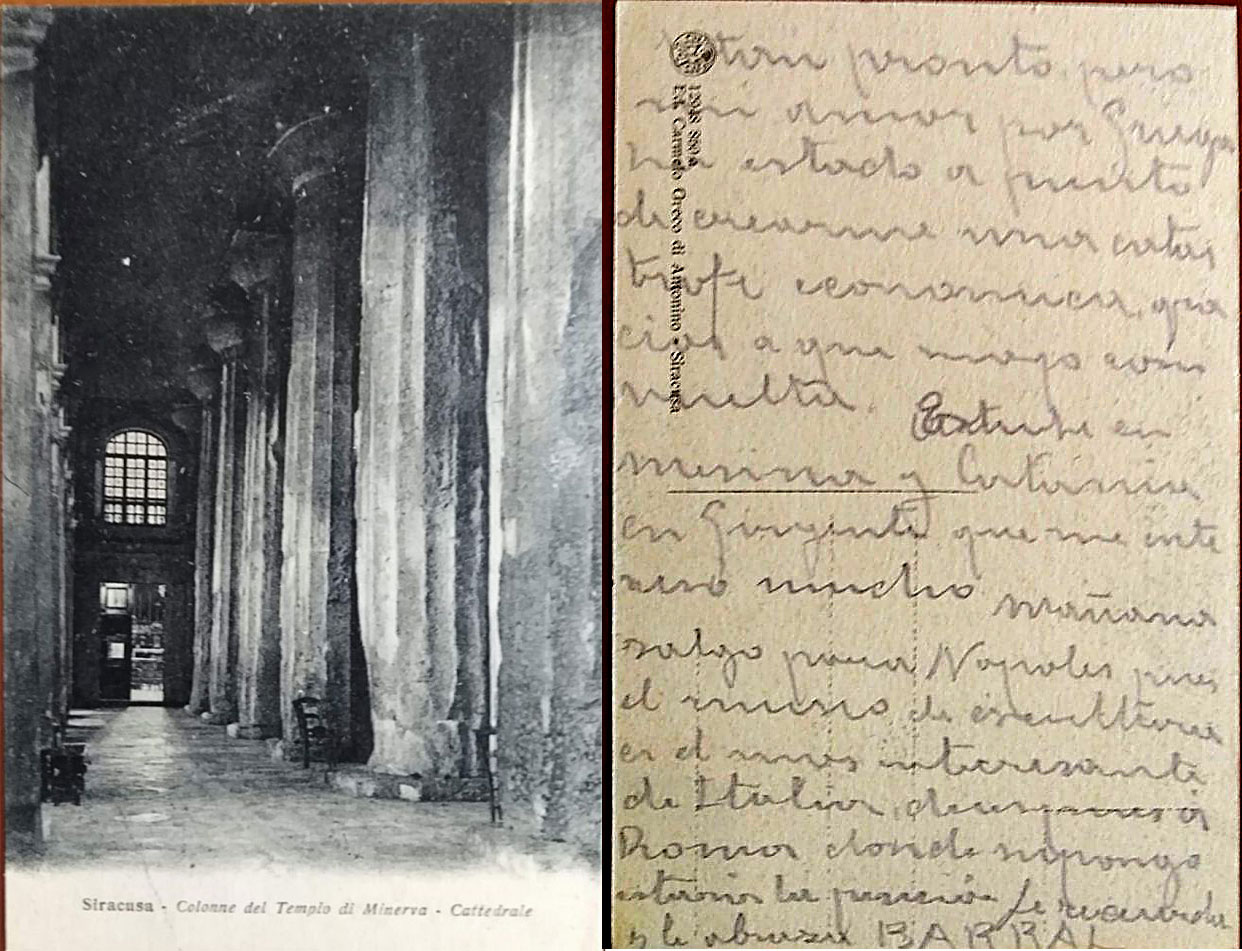 Siracusa - Colonne del Tempio di Minerva - Cattedrale
12948
Ed. Carmelo Oreco di Antonino - Siracusa
tan pronto, pero
mi amor por
ha estado a punto
de crearme una catas
trofe economica, gra
cias a que
vuelta. Estube en
mesina y Catania
en Girgenti que me inte
reso mucho mañana
salgo para Napoles pues
el museo de escultura
es el mas interesante
de Italia, despues a
Roma donde supongo
estaras la Le recuerda
y le abraza BARRAL